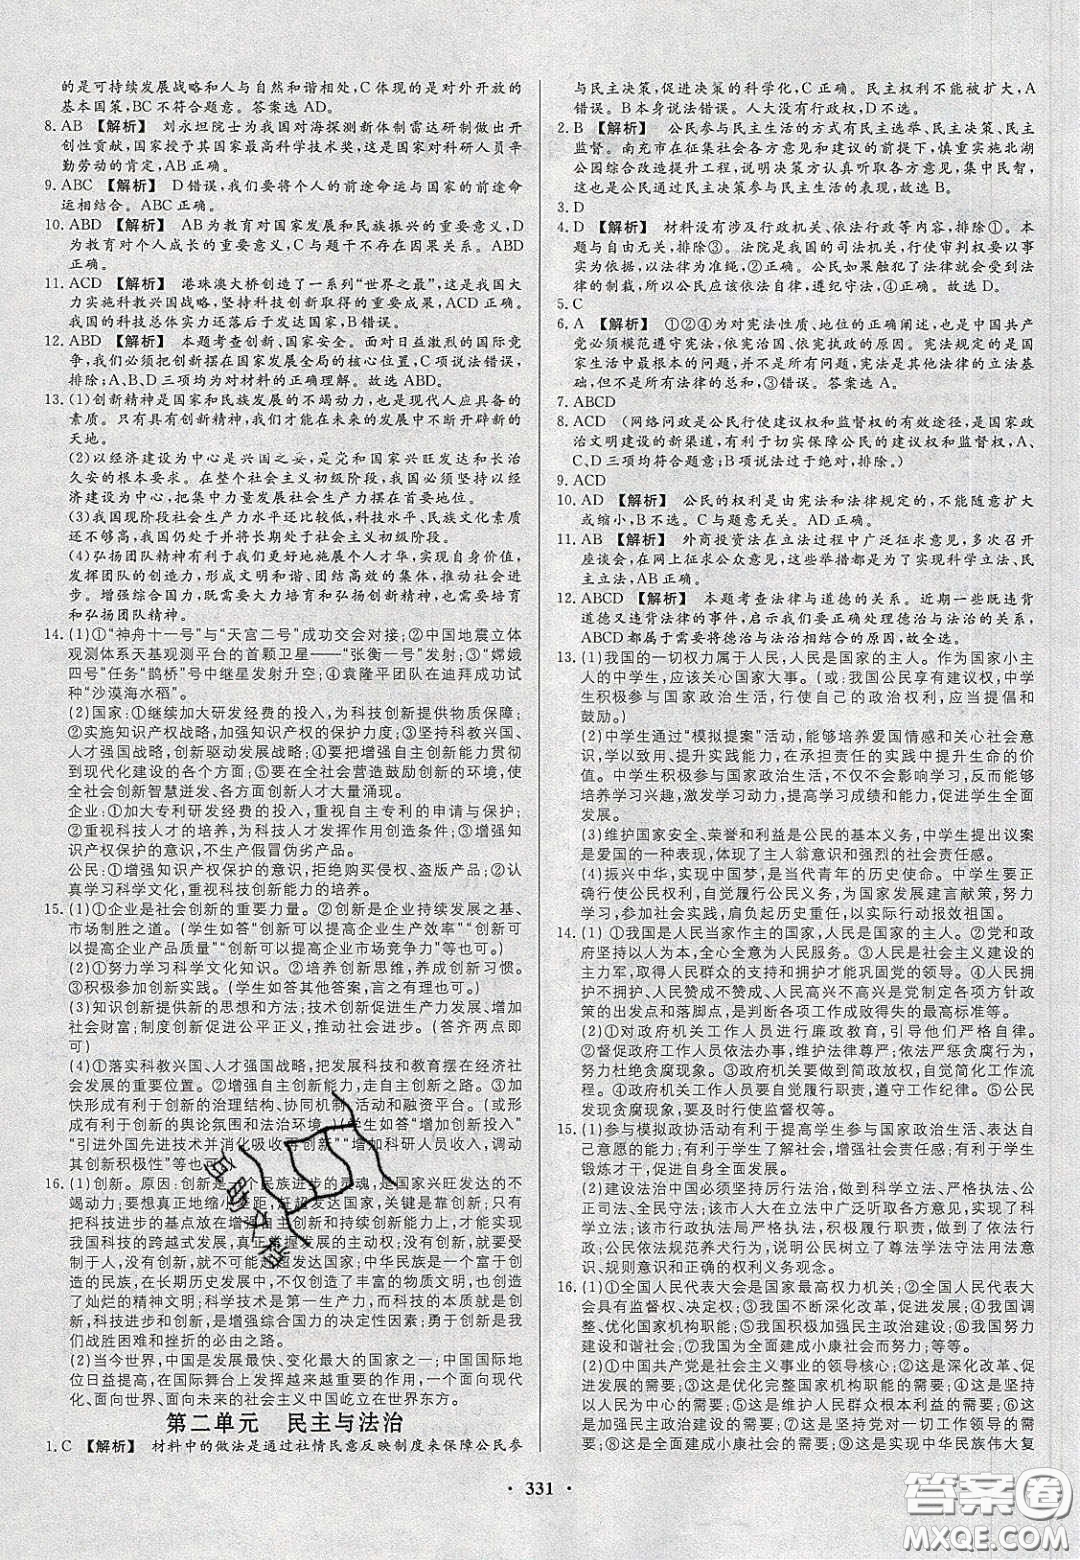 的是可持续发展战略和人与自然和谐相处,C体现的是对外开放的
基本国策,BC不符合题意。答案选AD。
8. AB 【解析】 刘永坦院士为我国对海探测新体制雷达研制做出开
创性贡献,授予其国家最高科学技术奖,这是国家对科研人员辛
勤劳动的肯定,AB正确。
9. ABC 【解析】 D错误,我们要将个人的前途命运与国家的前途命
运相结合。ABC正确。
10. ABD 【解析】 AB为教育对国家发展和民族振兴的重要意义,D
为教育对个人成长的重要意义,C与题干不存在因果关系。ABD
正确。
11. ACD 【解析】 港珠澳大桥创造了一系列“世界之最”,这是我国大
力实施科教兴国战略,坚持科技创新取得的重要成果,ACD正确。
我国的科技总体实力还落后于发达国家,B错误。
12. ABD 【解析】 本题考查创新、国家安全。面对日益激烈的国际竞
争,我们必须把创新摆在国家发展全局的核心位置,C项说法错误,
排除;A、B、D三项均为对材料的正确理解。故选ABD。
13. (1)创新精神是国家和民族发展的不竭动力,也是现代人应具备的
素质。只有具有创新精神,我们才能在未来的发展中不断开辟新的
天地。
(2)以经济建设为中心是兴国之要,是党和国家兴旺发达和长治
久安的根本要求。在整个社会主义初级阶段,我国必须坚持以经
济建设为中心,把集中力量发展社会生产力摆在首要位置。
(3)我国现阶段社会生产力水平还比较低,科技水平、民族文化素质
还不够高,我国仍处于并将长期处于社会主义初级阶段。
(4)弘扬团队精神有利于施展个人才华,实现自身价值,
发挥团队的创造力,形成文明和谐、团结高效的集体,推动社会进
步。增强综合国力,既需要大力培育和弘扬创新精神,也需要培育
和弘扬团队精神。
14. (1)①“神舟十一号”与“天宫二号”成功交会对接;②中国地震立体
观测体系天基观测平台的首颗卫星——“张衡一号”发射;③“嫦娥
四号”任务“鹊桥”号中继星发射升空;④袁隆平团队在迪拜成功试
种“沙漠海水稻”。
(2)国家:①继续加大研发经费的投入,为科技创新提供物质保障;
②实施知识产权战略,加强对知识产权的保护力度;③实施科教兴
国、人才强国战略,创新驱动发展战略;④要把增强自主创新能力贯彻
到现代化建设的各个方面;⑤要在全社会营造鼓励创新的环境,使
全社会创新智慧迸发、各方面创新人才大量涌现。
企业:①加大专利研发经费的投入,重视自主专利的申请与保护;
②重视科技人才的培养,为科技人才发挥作用创造条件;③增强知
识产权保护的意识,不生产假冒伪劣产品。
公民:①增强知识产权保护的意识,拒绝购买侵权、盗版产品;②认
真学习科学文化,重视科技创新能力的培养。
15. (1)①企业是社会创新的重要力量。②创新是企业持续发展之基、
市场制胜之道。(学生如答“创新可以提高企业生产效率”“创新可
以提高企业产品质量”“创新可以提高企业市场竞争力”等也可。)
(2)①努力学习科学文化知识。②培养创新思维,养成创新习惯。
③积极参加创新实践。(学生如答其他答案,言之成理也可。)
(3)知识创新提供新的思想和方法;技术创新促进生产力发展、增加
社会财富;制度创新促进公平正义,推动社会进步。(答齐两点即
可)
(4)①落实科教兴国、人才强国战略,把发展科技和教育摆在经济社
会发展的重要位置。②增强自主创新能力,走自主创新之路。③加
快形成有利于创新的治理结构、协同机制、活动和融资平台。(或形
成有利于创新的舆论氛围和法治环境。)(学生如答“增加创新投入”
“引进外国先进技术并消化吸收再创新”“增加科研人员收入,调动
其创新积极性”等也可。)
16. (1)创新。原因:创新是一个民族进步的灵魂,是国家兴旺发达的不
竭动力;要想真正地缩小差距,赶超发达国家,我国必须把
科技进步的基点放在增强自主创新和持续创新能力上,实现
我国科技的跨越式发展,真正掌握发展的主动权;否则,我们就会受制
于人,没有创新,就不可能赶超发达国家;中华民族是一个富于创造
的民族,在长期历史发展中,不仅创造了丰富的物质文明,而且创造
了灿烂的精神文明;科学技术是第一生产力,而科技的本质就是创新,
科技进步和创新,是增强综合国力的决定性因素;勇于创新会推动我
们战胜困难和挫折的必由之路。
(2)当今世界,中国是发展最快、变化最大的国家之一;中国国际地
位日益提高,在国际舞台上发挥着越来越重要的作用。一个面向现代
化、面向世界、面向未来的社会主义中国屹立在世界东方。
第二单元 民主与法治
1. C 【解析】 材料中的做法是通过社情民意反映制度来保障公民参
与民主决策,促进决策的科学化,C正确。民主权利不能被扩大,A
错误。B本身说法错误。人大没有行政权,D不选。
2. B 【解析】 公民参与民主生活的方式有民主选举、民主决策、民主
监督。南充市在征集社会各方意见和建议的前提下,慎重实施北湖
公园综合改造提升工程,说明决策方认真听取各方意见,集中民智,
这也是公民通过民主决策参与民主生活的表现,故选B。
3. D
4. D 【解析】 材料没有涉及行政机关、依法行政等内容,排除①。本
题与自由无关,排除③。法院是我国的司法机关,行使审判权要以事
实为依据,以法律为准绳,②正确。公民如果触犯了法律就会受到法律
的制裁,所以公民应该依法自律,遵纪守法,④正确。故选D。
5. C
6. A 【解析】 ①②④为对宪法性质、地位的正确阐述,也是中国共产
党必须模范遵守宪法,依宪治国、依宪执政的原因。宪法规定的是
国家生活中最根本的问题,并不是所有问题,也不是其他法律的立法基
础,并不是所有法律的总和,③错误。答案选A。
7. ABCD
8. ACD (网络问政是公民行使建议权和监督权的有效途径,是国家政
治文明建设的新渠道,有利于切实保障公民的建议权和监督权,A、
C、D三项均符合题意;B项说法过于绝对,排除。)
9. ACD
10. AD 【解析】 公民的权利是由宪法和法律规定的,不能随意扩大
或缩小,B不选。C与题意无关。AD正确。
11. AB 【解析】 外商投资法在立法过程中广泛征求意见,多次召开
座谈会,在网上征求公众意见,这些举措都是为了实现科学立法、民
主立法,AB正确。
12. ABCD 【解析】 本题考查法律与道德的关系。近期一些既违背
道德又违背法律的事件,启示我们要正确处理德治与法治的关系,
ABCD都属于需要将德治与法治相结合的原因,故全选。
13. (1)我国的一切权力属于人民,人民是国家的主人。作为国家小主
人的中学生,应该关心国家大事。(或:我国公民享有建议权,中学
生积极参与国家政治生活,行使自己的政治权利,应当提倡和
鼓励。)
(2)中学生通过“模拟提案”活动,能够培养爱国情感和关心社会意
识,学以致用、提高实践能力,在承担责任的实践中提升生命的价
值。中学生积极参与国家政治生活,不仅不会影响学习,反而能够
培养学习兴趣,激发学习动力,提高学习成绩和能力,促进学生全面
发展。
(3)维护国家安全、荣誉和利益是公民的基本义务,中学生提出议案
是爱国的一种表现,体现了主人翁意识和强烈的社会责任感。
(4)振兴中华,实现中国梦,是当代青年的历史使命。中学生要正
确行使公民权利,自觉履行公民义务,为国家发展建言献策,努力学
习,参加社会实践,肩负起历史重任,以实际行动报效祖国。
14. (1) ①我国是人民当家作主的国家,人民是国家的主人。②党和政
府坚持以人为本,全心全意为人民服务。③人民是社会主义建设的
主力军,取得人民群众的支持和拥护才能巩固党的领导。④人民拥
护不拥护、人民赞成不赞成、人民高兴不高兴是党制定各项方针政策
的出发点和落脚点,是判断各项工作成败得失的最高标准等。
(2)①对政府机关工作人员进行廉政教育,引导他们严格自律。
②督促政府工作人员依法办事,维护法律尊严,依法严惩贪腐行为,
防止贪腐现象发生。③政府要做到简政放权,自觉简化工作流
程。④政府机关工作人员要自觉履行职责,遵守工作纪律。⑤公民
发现贪腐现象,要及时举报,行使监督权等。
15. (1)参与模拟政协活动有利于提高学生参与国家政治生活、表达自
己意愿的能力;有利于学生了解社会,增强社会责任感;有利于学生
锻炼才干,促进自身全面发展。
(2)建设法治中国必须坚持厉行法治,做到科学立法、严格执法、公
正司法、全民守法;该市人大在立法中广泛听取各方意见,体现了科
学立法;该市行政执法局严格执法,积极履行职责,做到了依法行
政;公民依法规范养犬行为,说明公民树立了尊法学法守法用法意
识,规则意识和正确的权利义务观念。
16. (1)①全国人民代表大会是国家最高权力机关;②全国人民代表大
会具有监督权、决定权;③我国不断深化改革,促进发展;④我国调
整、优化国家机构职能;⑤我国加强民主政治建设;⑥我国努力建设
民主国家和谐社会;⑦我国为全面建成小康社会而努力;等等。
(2)①中国共产党是社会主义事业的领导核心;②这是深化改革、促
进发展的需要;③这是优化完善国家机构职能的需要;④这是建设服
务型政府的需要;⑤这是加强民主政治建设的需要;⑥这是构建和
谐社会的需要;⑦这是实现全面依法治国的需要;⑧这是全
面建成小康社会的需要;⑨这是实现中华民族伟大复
· 331 ·
答案圈
MXQE.COM